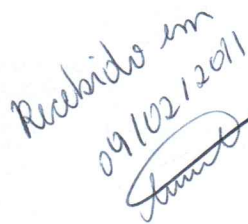 Recebido em
09/02/2011